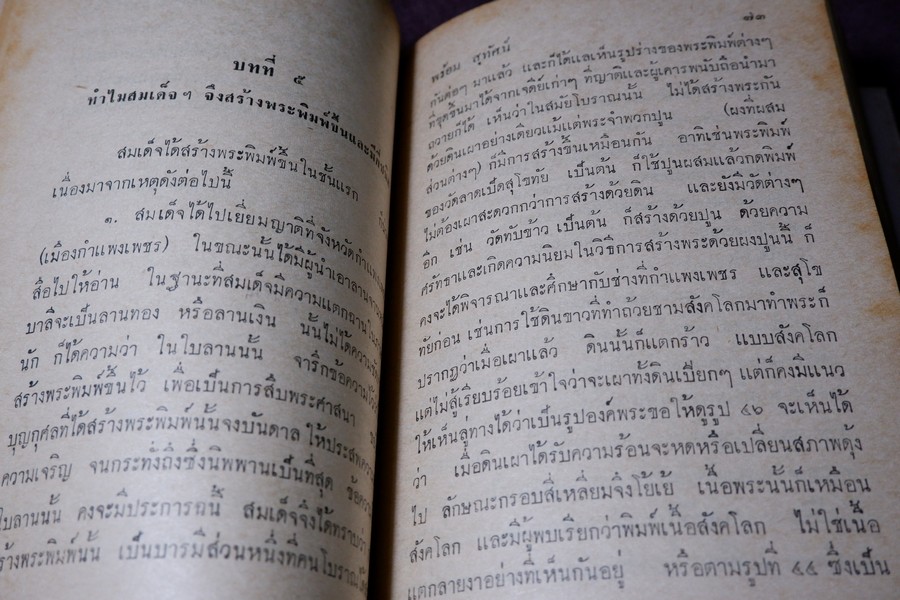 บทที่ ๕
ทำไมสมเด็จฯ จึงสร้างพระพิมพ์ขึ้นและมี
สมเด็จได้สร้างพระพิมพ์ขึ้นในชั้นแรก
เนื่องมาจากเหตุดังต่อไปนี้
๑. สมเด็จได้ไปเยี่ยมญาติที่จังหวัดกำแพง
(เมืองกำแพงเพชร) ในขณะนั้นได้มีผู้นำเอาลาน
สือไปให้อ่าน ในฐานะที่สมเด็จมีความแตกฉานใน
บาลีจะเป็นลานทอง หรือลานเงิน นั้นไม่ได้ความ
นัก ก็ได้ความว่า ในใบลานนั้น จารึกข้อความ
สร้างพระพิมพ์ขึ้นไว้ เพื่อเป็นการสืบพระศาสนา
บุญกุศลที่ได้สร้างพระพิมพ์นั้นจงบันดาล ให้ประสพความ
ความเจริญ จนกระทั่งถึงซึ่งนิพพานเป็นที่สุด ข้อความ
ใบลานนั้น คงจะมีประการฉนี้ สมเด็จจึงได้ทราบว่า
ร้างพระพิมพ์นั้น เป็นบารมีส่วนหนึ่งที่คนโบราณ
๗๓
พร้อม สุทัศน์
กันต่อๆ มาแล้ว และก็ได้แลเห็นรูปร่างของพระพิมพ์ต่างๆ
ที่ขุดขึ้นมาได้จากเจดีย์เก่าๆ ที่ญาติและผู้เคารพนับถือนำมา
ถวายก็ได้ เห็นว่าในสมัยโบราณนั้น ไม่ได้สร้างพระกัน
ด้วยดินเผาอย่างเดียวแม้แต่พระจำพวกปูน (ผงที่ผสม
ส่วนต่างๆ) ก็มีการสร้างขึ้นเหมือนกัน อาทิเช่นพระพิมพ์
ของวัดลาดเป็ดสุโขทัย เป็นต้น ก็ใช้ปูนผสมแล้วกดพิมพ์
ไม่ต้องเผาสะดวกกว่าการสร้างด้วยดิน และยังมีวัดต่างๆ
อีก เช่น วัดทับข้าว เป็นต้น ก็สร้างด้วยปูน ด้วยความ
ศรัทธาและเกิดความนิยมในวิธีการสร้างพระด้วยผงปูนนี้ ก็
คงจะได้พิจารณาและศึกษากับช่างที่กำแพงเพชร และสุโข
ทัยก่อน เช่นการใช้ดินขาวที่ทำถ้วยชามสังคโลกมาทำพระก็
ปรากฏว่าเมื่อเผาแล้ว ดินนั้นก็แตกร้าว แบบสังคโลก
แต่ไม่สู้เรียบร้อยเข้าใจว่าจะเผาทั้งดินเปียกๆ แต่ก็คงมีแนว
ให้เห็นลู่ทางได้ว่าเป็นรูปองค์พระขอให้ดูรูป ๔๖ จะเห็นได้
ว่า เมื่อดินเผาได้รับความร้อนจะหดหรือเปลี่ยนสภาพดุ้ง
ไป ลักษณะกรอบสี่เหลี่ยมจึงโย้เย้ เนื้อพระนั้นก็เหมือน
สังคโลก และมีผู้พบเรียกว่าพิมพ์เนื้อสังคโลก ไม่ใช่เนื้อ
แตกลายงาอย่างที่เห็นกันอยู่ หรือตามรูปที่ ๔๔ ซึ่งเป็น